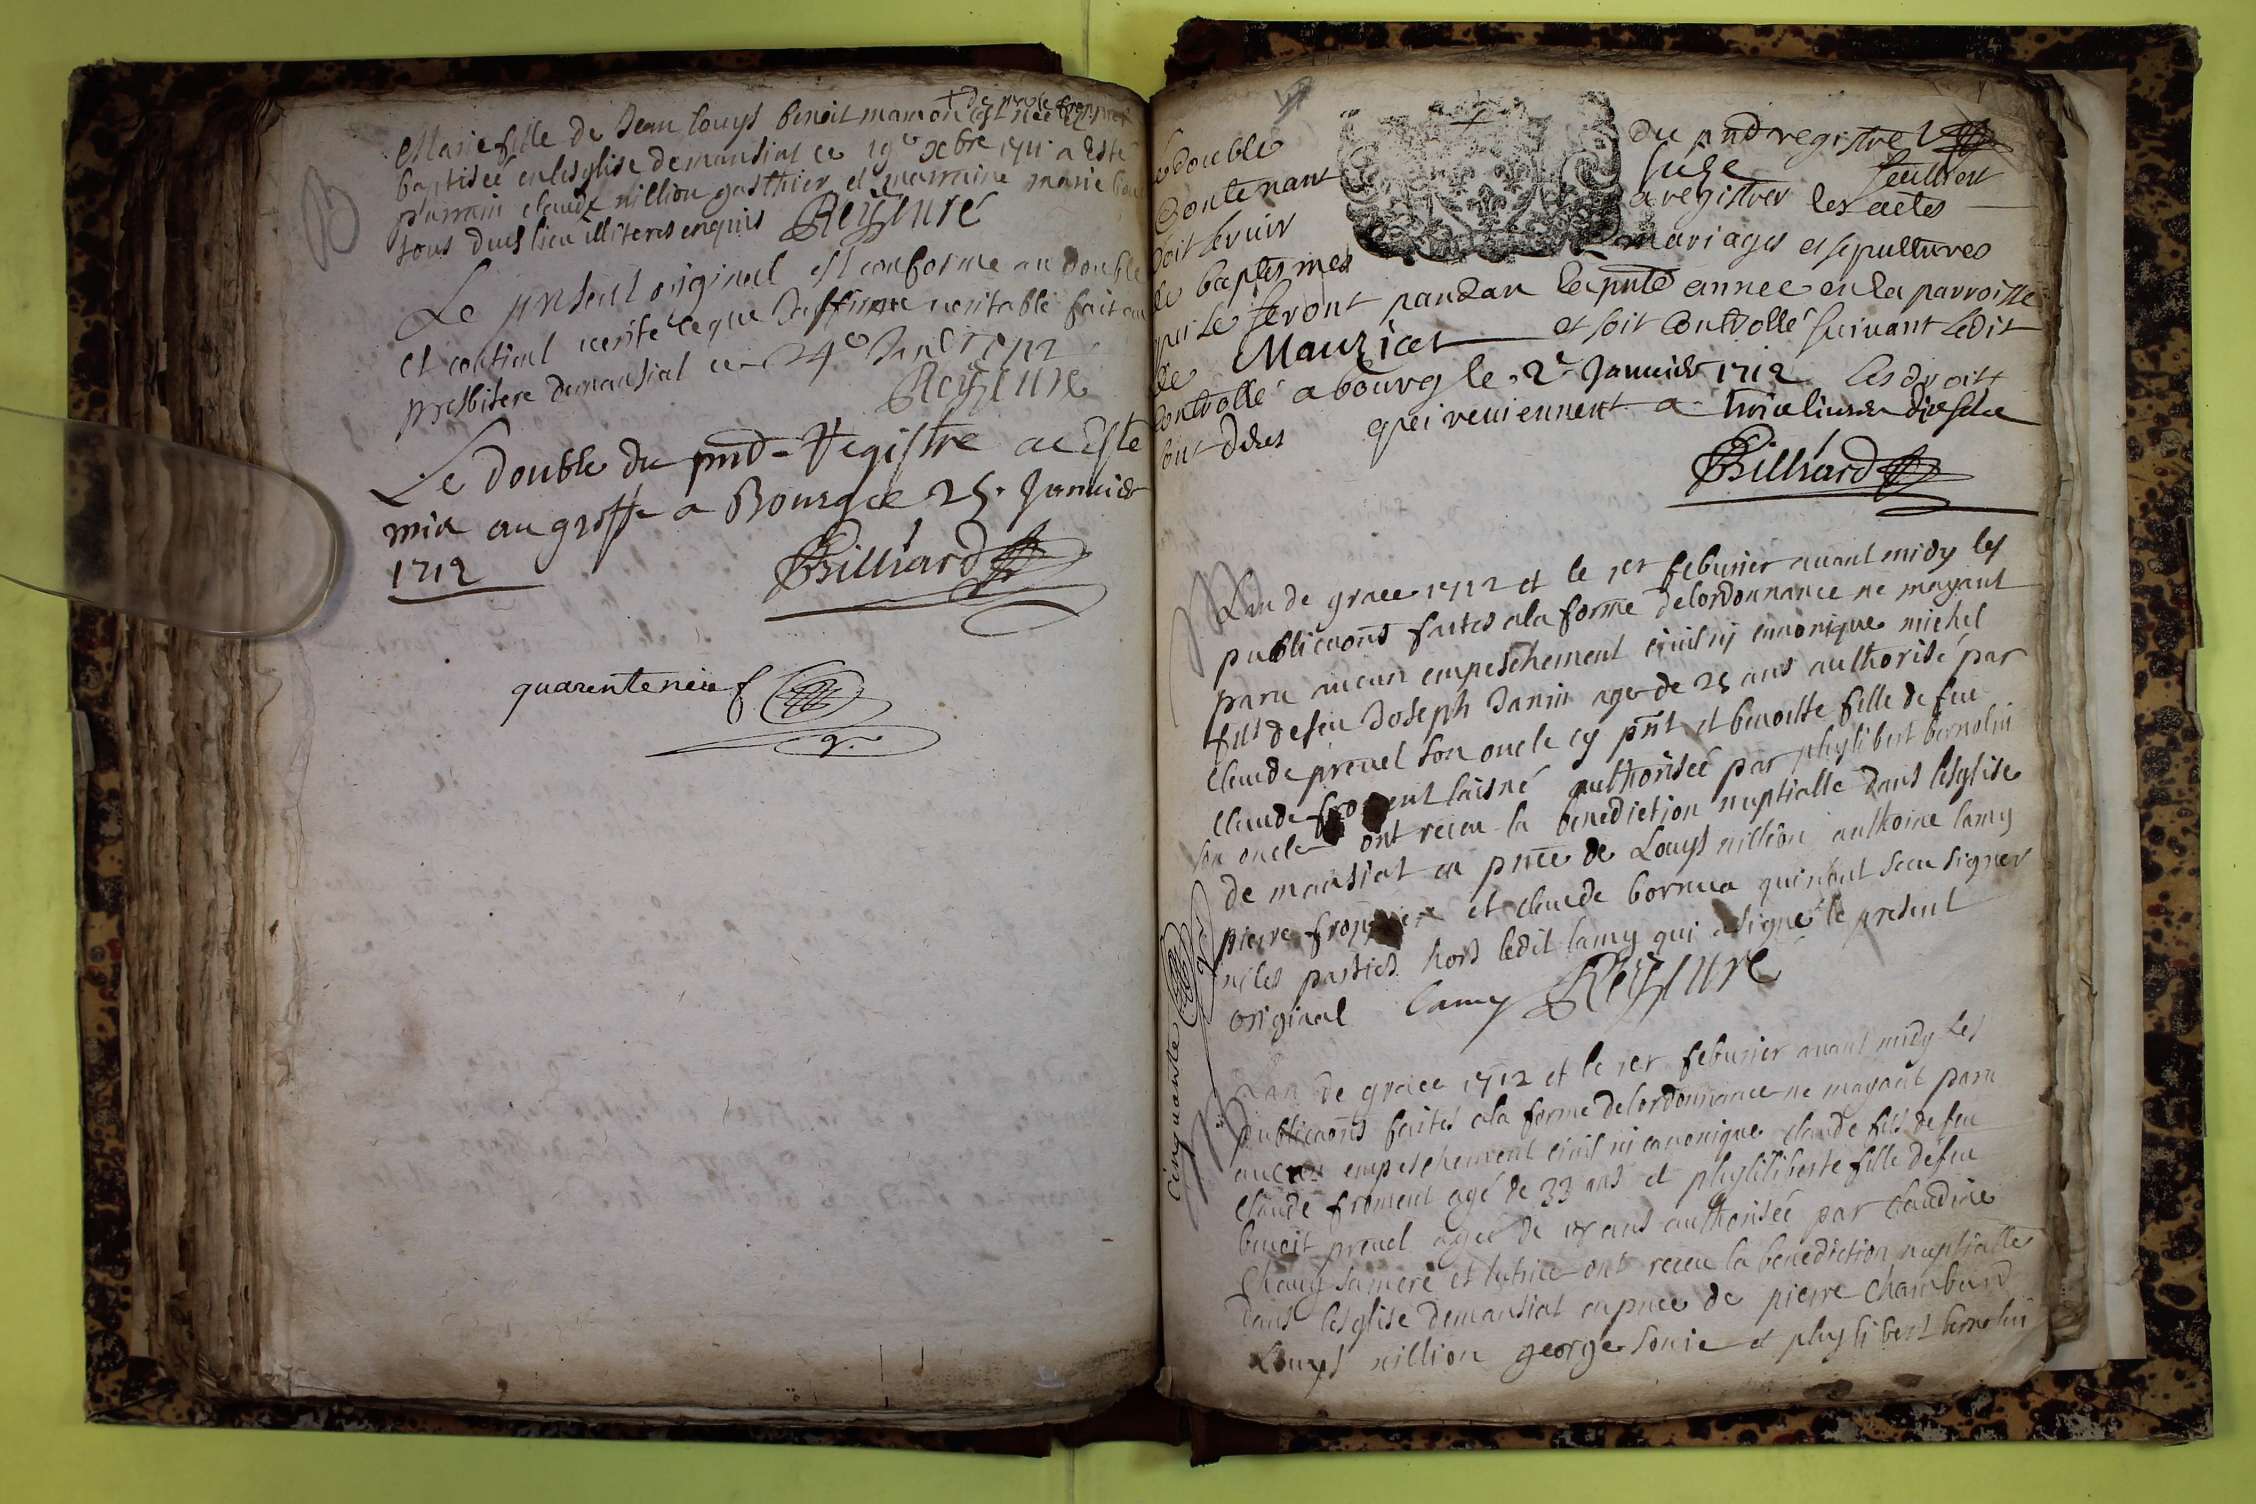 Marie fille de Jean louys benoit mamon est née
baptiseé en lesglise demantiat ce 19e xbre 1711 a esté
parrain claude nillion gautthier et marraine marie
tous dud lieu illiteres enquis Rey cure
Le present original est conforme au double
et contient verité ce que Jaffirme veritable fait au
presbitere demantiat ce 24e Janr 1712
Rey cure
Le double du pnd Registre a Esté
mis au greffe a Bourg ce 25 Januier
1712 Billiard
quarente neuf
Le double
Contenant
doit seruir
de baptesmes
du pnd registre
seize feuillets
a registrer les actes
mariages et sepultures
qui se feront pandan la pnte annee en la parroisse
de Manziat et soit Controllé suivant ledit
Controllé a bourg le 2e Januier 1712 Les droits
ont deus qui reviennent a
Billiard
Lan de grace 1712 et le 1er feburier auant midy les
publicaons faites ala forme delordonnance ne mayant
paru aucun empeschement ciuil nj canonique michel
fils defeu Joseph Janin age de 25 ans authorisé par
Claude preuel son oncle cy pnt et benoiste fille de feu
Claude froment laisné authorisée par phylibert bernolin
son oncle ont receu la benediction nuptialle dans lesglise
de mantiat en pnce de Louys nillion anthoine lamy
pierre et claude bornua qui nont sceu signer
ni les parties hors ledit lamy qui a signé le present
original lamy Rey cure
Cinquante
Lan de grace 1712 et le 1er feburier auant midy les
publicaons faites ala forme delordonnance ne mayant paru
aucun empeschement ciuil ni canonique claude fils de feu
Claude froment agé de 33 ans et phyliberte fille defeu
benoit preuel agée de 18 ans authorisée par Claudine
Chauy sa mere et tutrice ont receu la benediction nuptialle
dans lesglise demantiat en pnce de pierre Chambard
Louys nillion george Sonie et phylibert bernolin